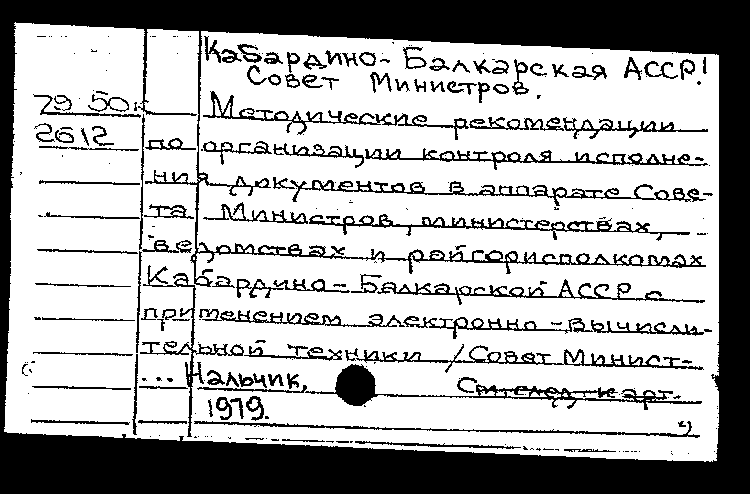 Кабардино-Балкарская АССР.
Совет Министров.
79 50к Методические рекомендации
2612 по организации контроля исполне-
ния документов в аппарате Сове-
та Министров, министерствах,
ведомствах и райгорисполкомах
Кабардино-Балкарской АССР с
применением электронно-вычисли-
тельной техники / Совет Минист-
... Нальчик,
См. след. карт.
1979.